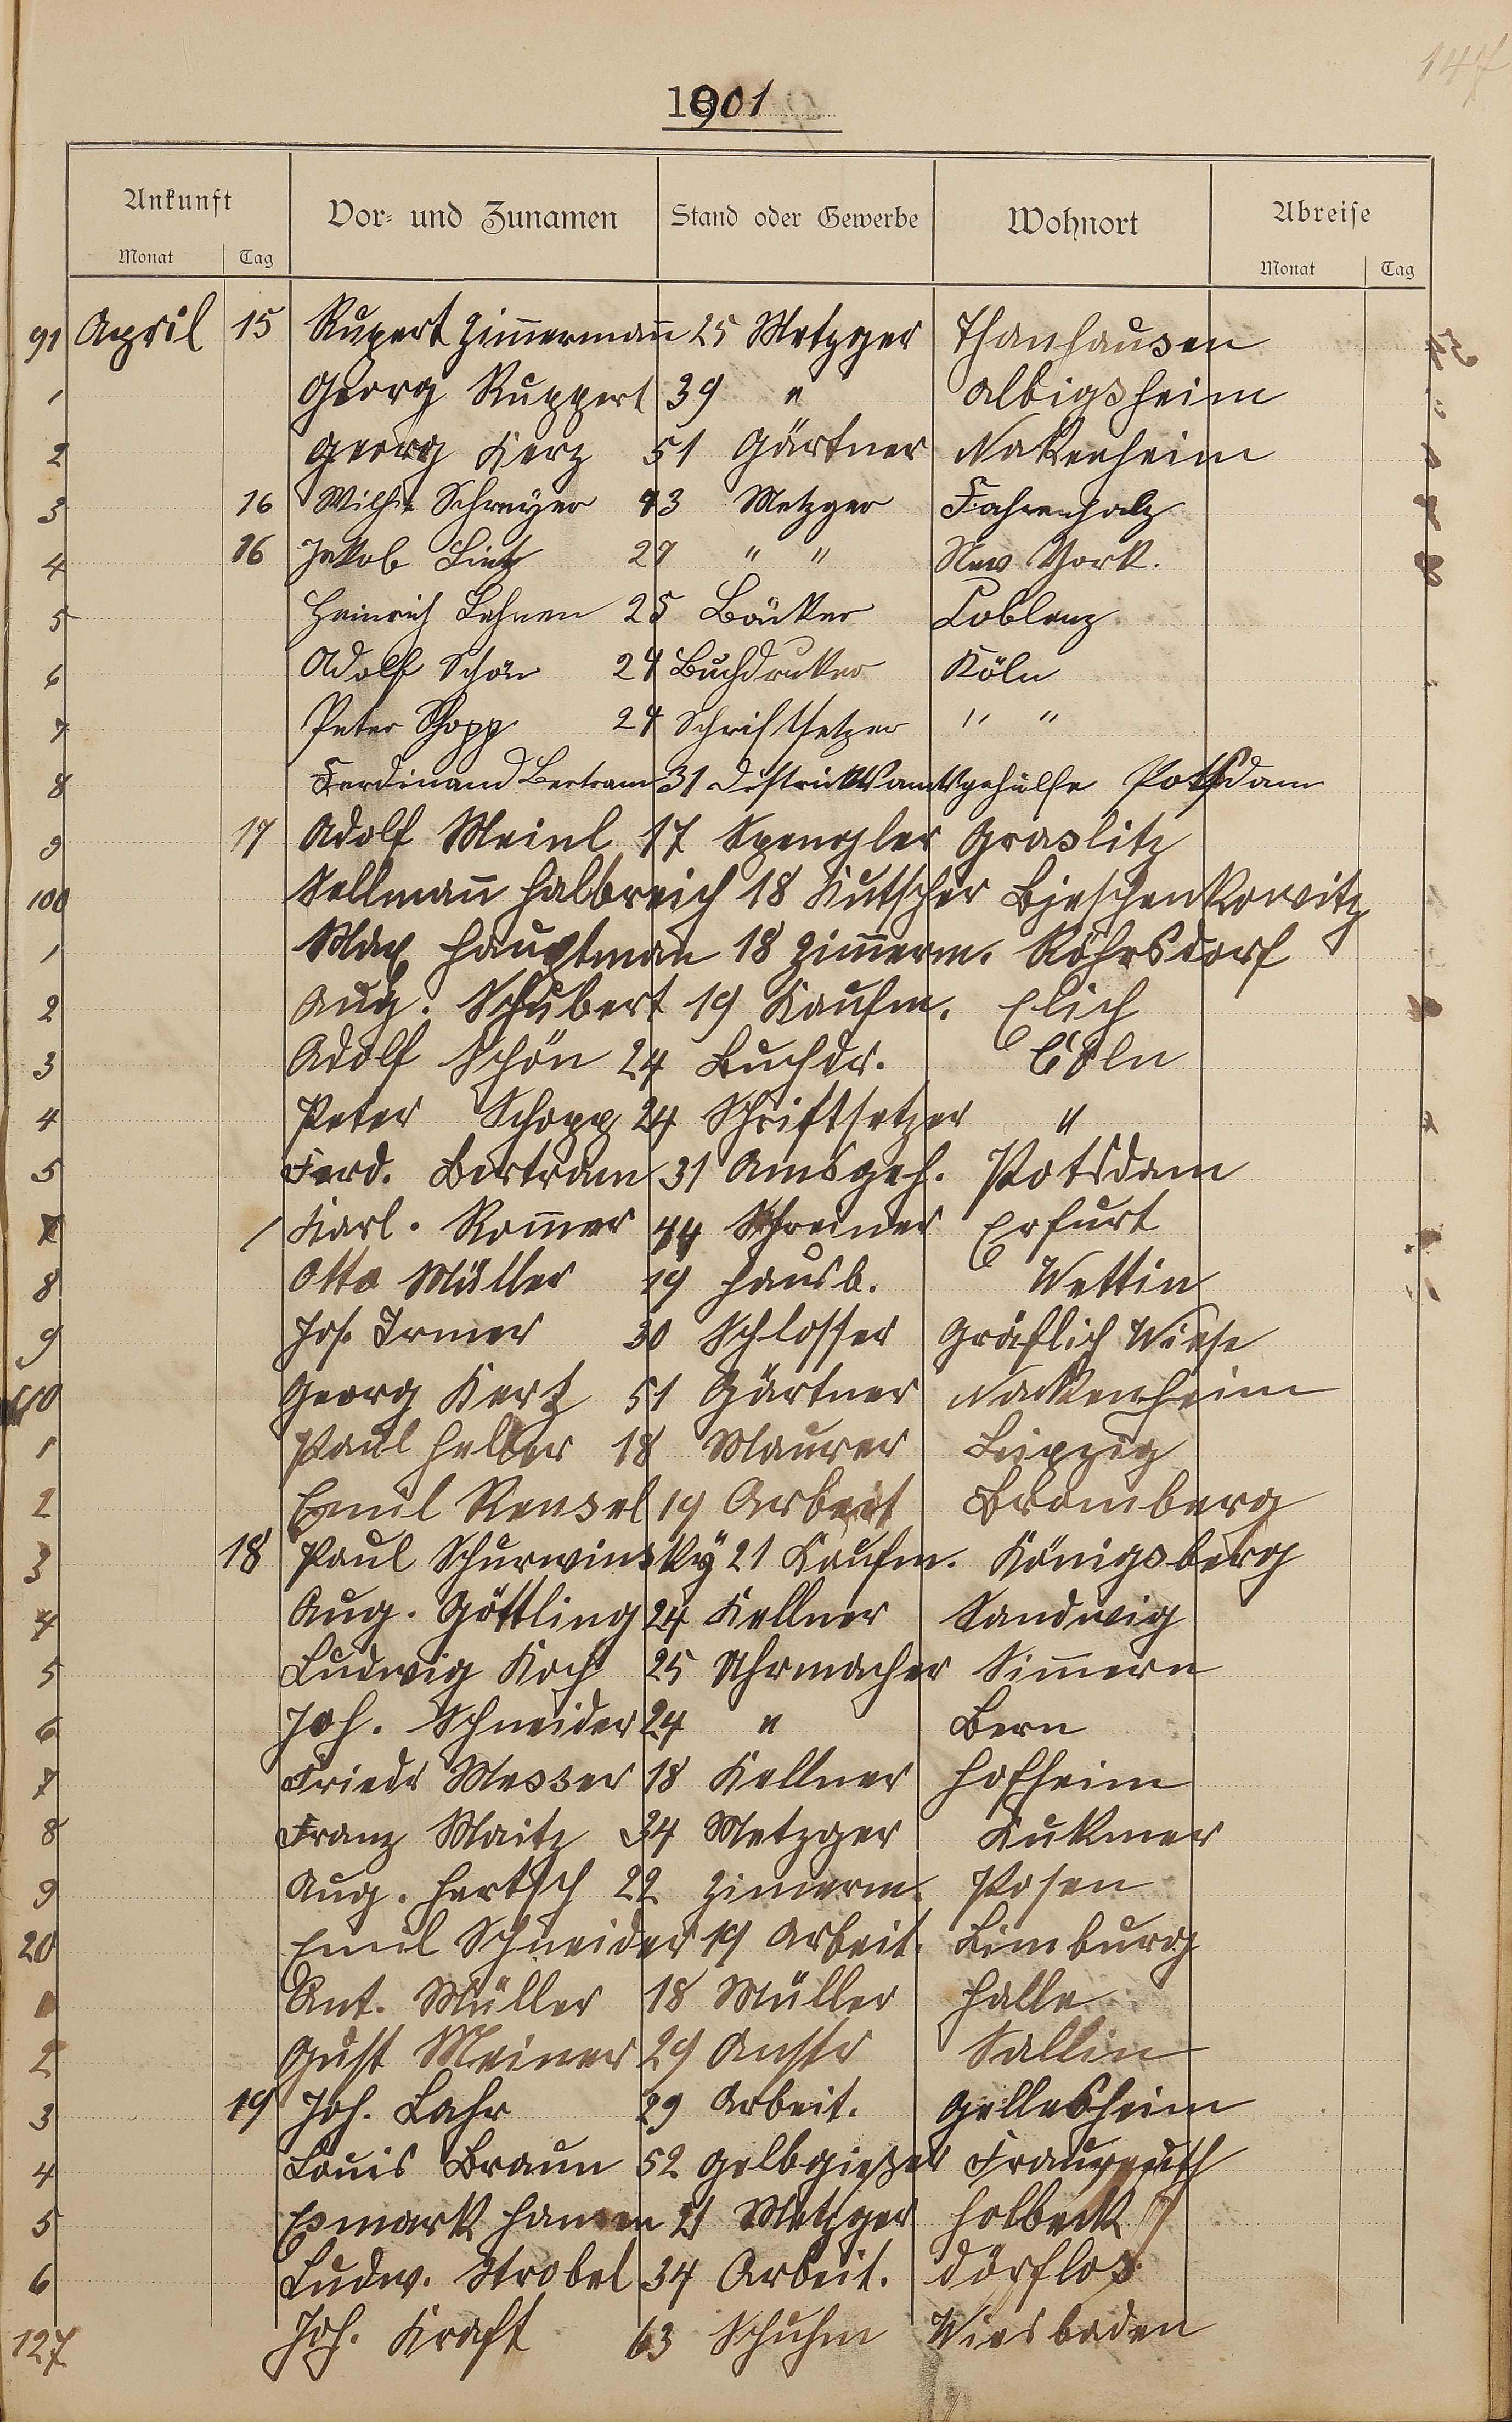 147
1901
Ankunft Vor- und Zunamen Stand oder Gewerbe Wohnort Abreise
Monat Tag Monat Tag
91 April 15 Rupert Zimmermann 25 Metzger Thanhausen
1 Georg Ruppert 39 " Albigsheim
2 Georg Kerz 51 Gärtner Nakenheim
3 16 Wilh. Schreyer 43 Metzger Fahrenholz
4 16 Jakob Lintz 29 " " New York.
5 Heinrich Lehnen 25 Bäcker Coblenz
6 Adolf Schön 24 Buchdrucker Köln
7 Peter Schopp 24 Schriftsetzer " "
8 Ferdinand Bertram 31 Distriktsamtsgehülfe Potsdam
9 17 Adolf Meinl 17 Spengler Graslitz
100 Sellmann Halbreich 18 Kutscher Bjeschenkowitz
1 Max Hauptman 18 Zimmerm. Röhrsdorf
2 Aug. Schubert 19 Kaufm. Elich
3 Adolf Schön 24 Buchdr. Cöln
4 Peter Schopp 24 Schriftsetzer "
5 Ferd. Bertram 31 Amsgeh. Potsdam
7 Karl. Rommer 44 Schreiner Erfurt
8 Otto Müller 19 Hausb. Wettin
9 Jos. Irmer 30 Schlosser Gräflich Wiese
110 Georg Kertz 51 Gärtner Nackenheim
1 Paul Helber 18 Maurer Leipzig
2 Emil Rensel 19 Arbeit Bromberg
3 18 Paul Schurwinsky 21 Kaufm. Königsberg
4 Aug. Göttling 24 Kellner Sandwig
5 Ludwig Koch 25 Uhrmacher Simmern
6 Joh. Schneider 24 " Bern
7 Friedr Messer 18 Kellner Hofheim
8 Franz Maitz 34 Metzger Kukmer
9 Aug. Hertsch 22 Zimmerm. Posen
20 Emil Schneider 19 Arbeit. Limburg
1 Ant. Müller 18 Müller Halle
2 Gust Meiner 29 Anstr Sallin
3 19 Joh. Lahr 29 Arbeit. Gellesheim
4 Louis Braun 52 Gelbgießer Fraureuth
5 Esmark Hansen 21 Metzger Holbeck
6 Ludw. Strobel 34 Arbeit. Dörflos
127 Joh. Kraft 63 Schuhm Wiesbaden